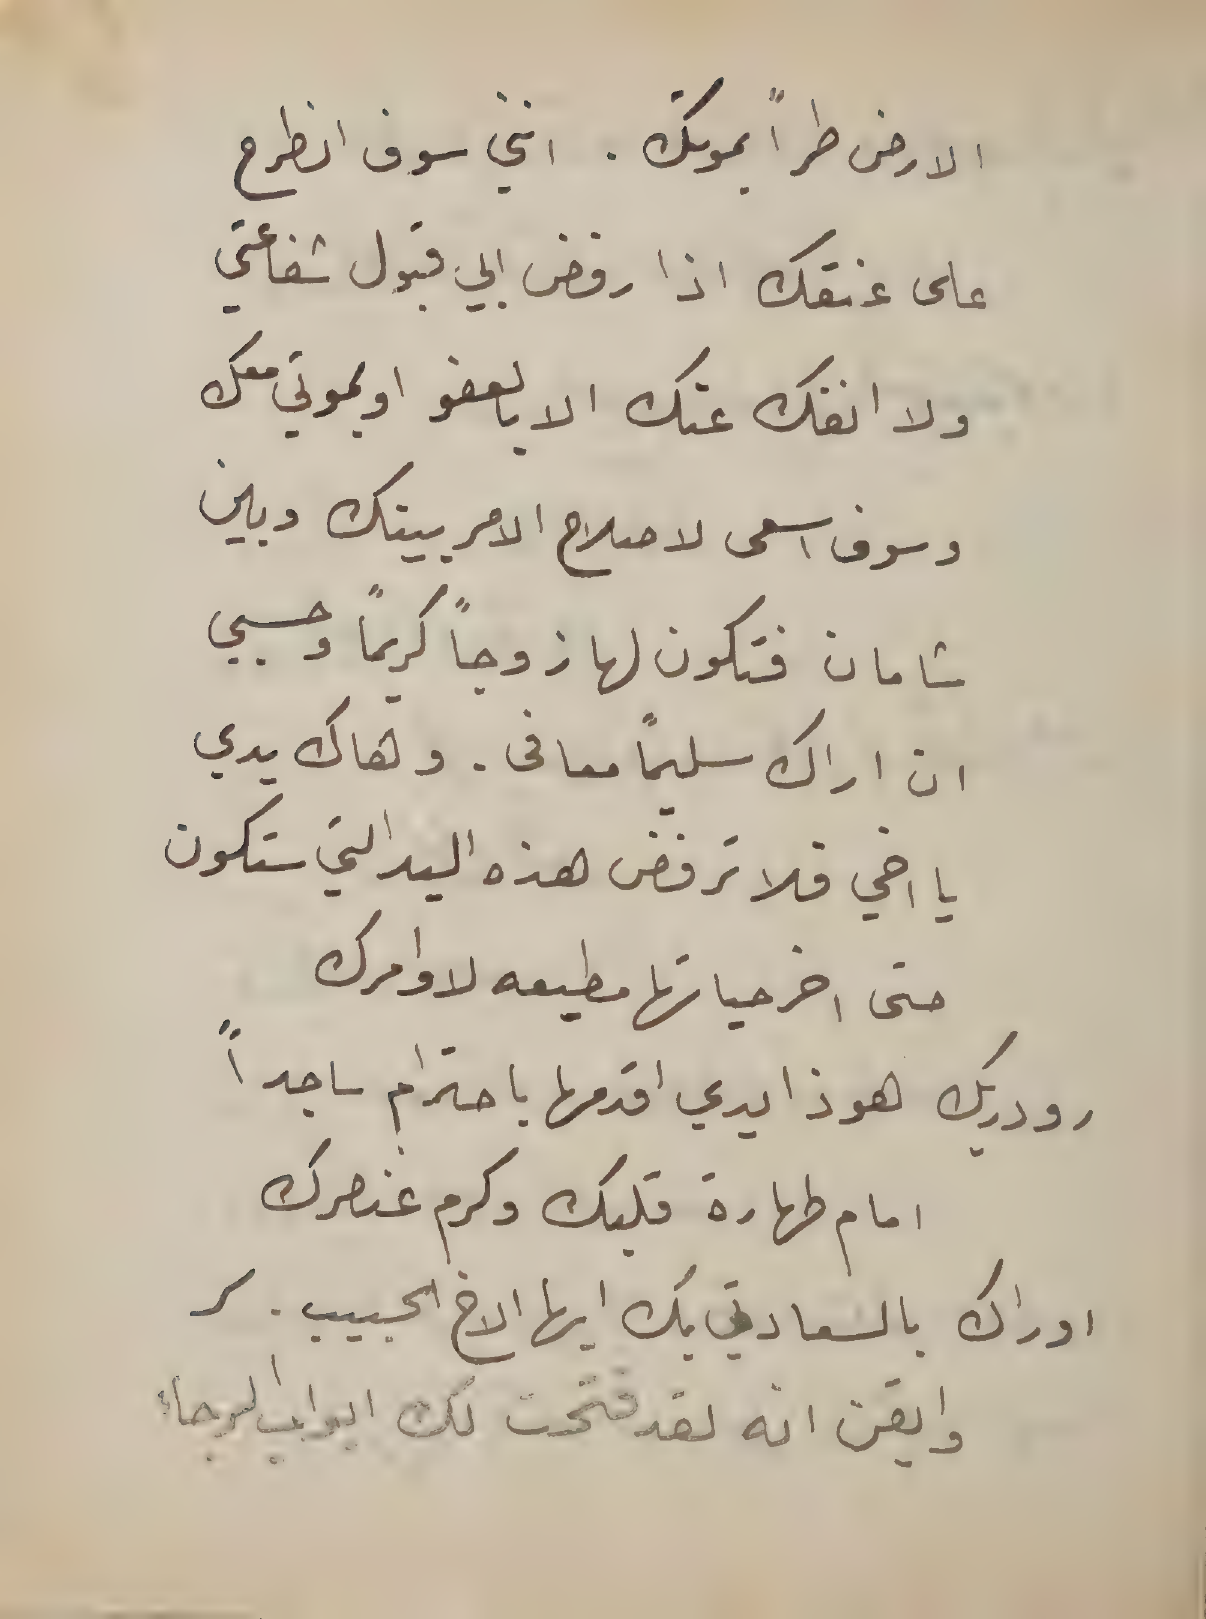 الارض طراً بموتك . انني سوف انطرح
على عنقك اذا رفض ابي قبول شفاعتي
ولا انفك عنك الا بالعفو او بموتي معك
وسوف اسعى لاصلاح الامر بينك وبين
شامان فتكون لها زوجاً كريماً وحسبي
ان اراك سليماً معافى . وهاك يدي
يا اخي فلا ترفض هذه اليد التي ستكون
حتى اخر حياتها مطيعه لاوامرك
رودريك هوذا يدي اقدمها باحترام ساجداً
امام طهارة قلبك وكرم عنصرك
اوراك بالسعادتي بك ايها الاخ الحبيب .
وايقن انه لقد فتحت لك ابواب الرجاء